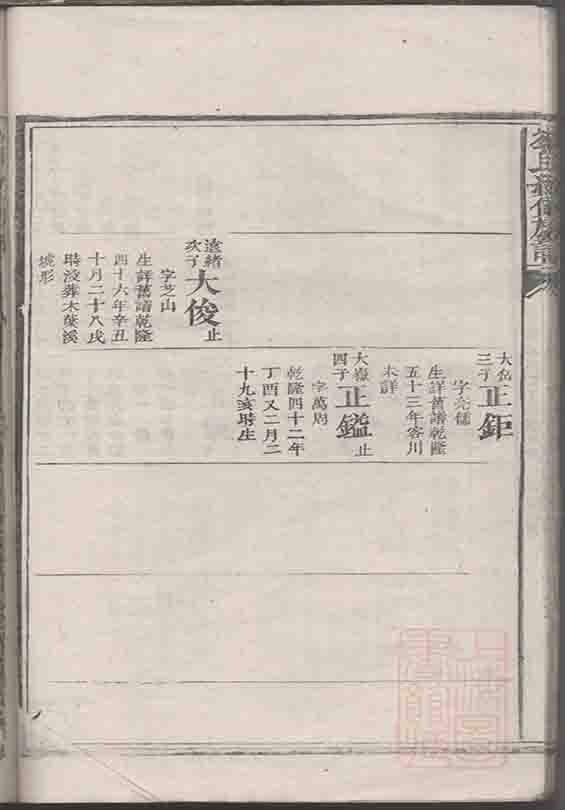 大岳
三子
正鉅
字亮儒
生詳舊譜乾隆
五十三年客川
未詳
大嶽
四子
正鑑止
字萬周
乾隆四十二年
丁酉又二月二
十九亥時生
遠緒
次子
大俊止
字芝山
生詳舊譜乾隆
四十六年辛丑
十月二十八戌
時歿葬木葉溪
形